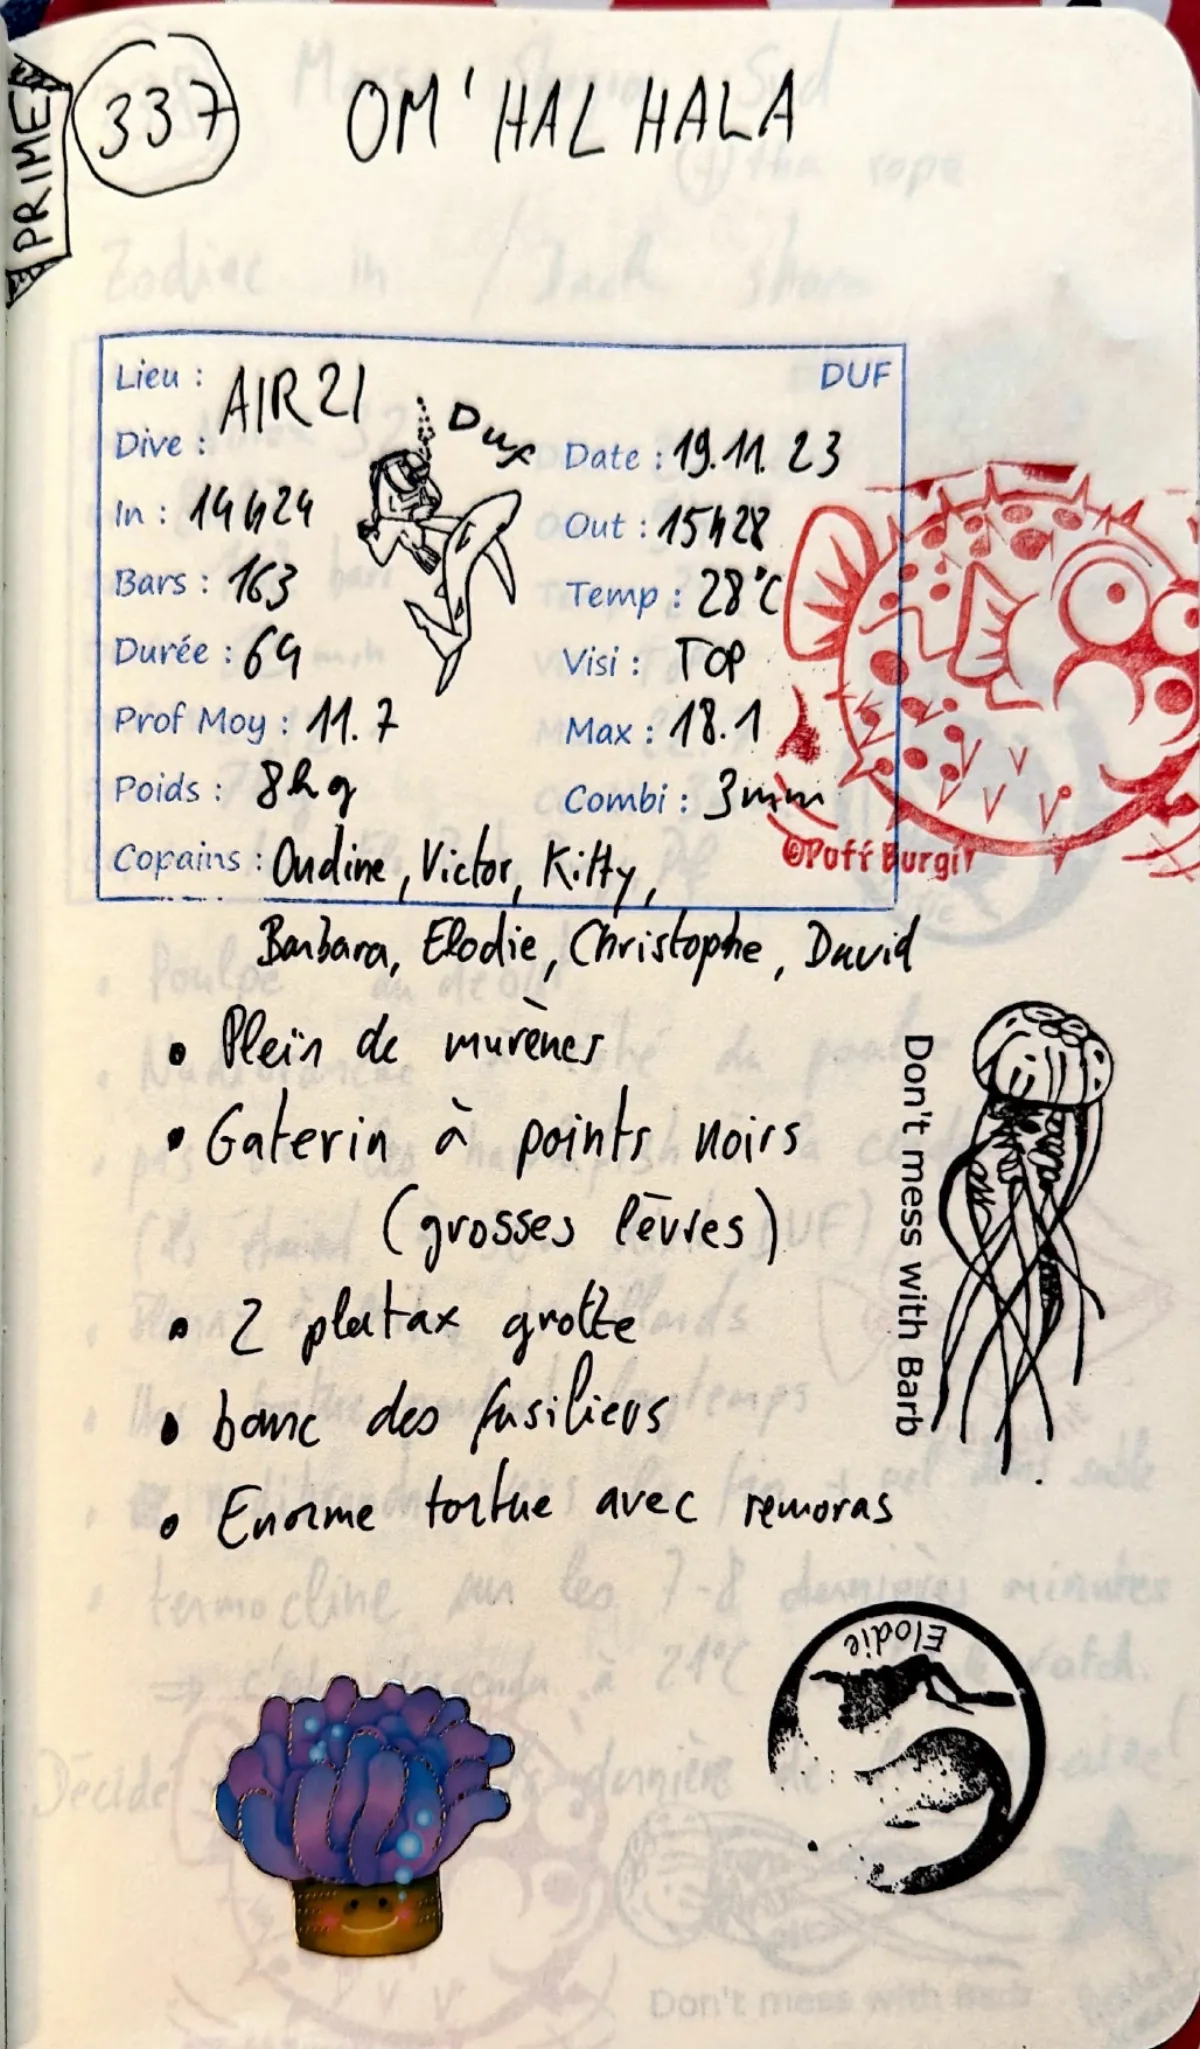 PRIME
337
OM' HAL HALA
Lieu : AIR21
DUF
Dive :
Duf
Date : 19.11.23
In : 14h24
Out : 15h28
Bars : 163
Temp : 28°C
Durée : 64
Visi : TOP
Prof Moy : 11.7
Max : 18.1
Poids : 8kg
Combi : 3mm
©Puff Burgi
Copains : Ondine, Victor, Kitty,
Barbara, Elodie, Christophe, David
• Plein de murènes
• Gaterin à points noirs
(grosses lèvres)
• 2 platax grotte
• banc des fusiliers
• Enorme tortue avec remoras
Don't mess with Barb
Elodie